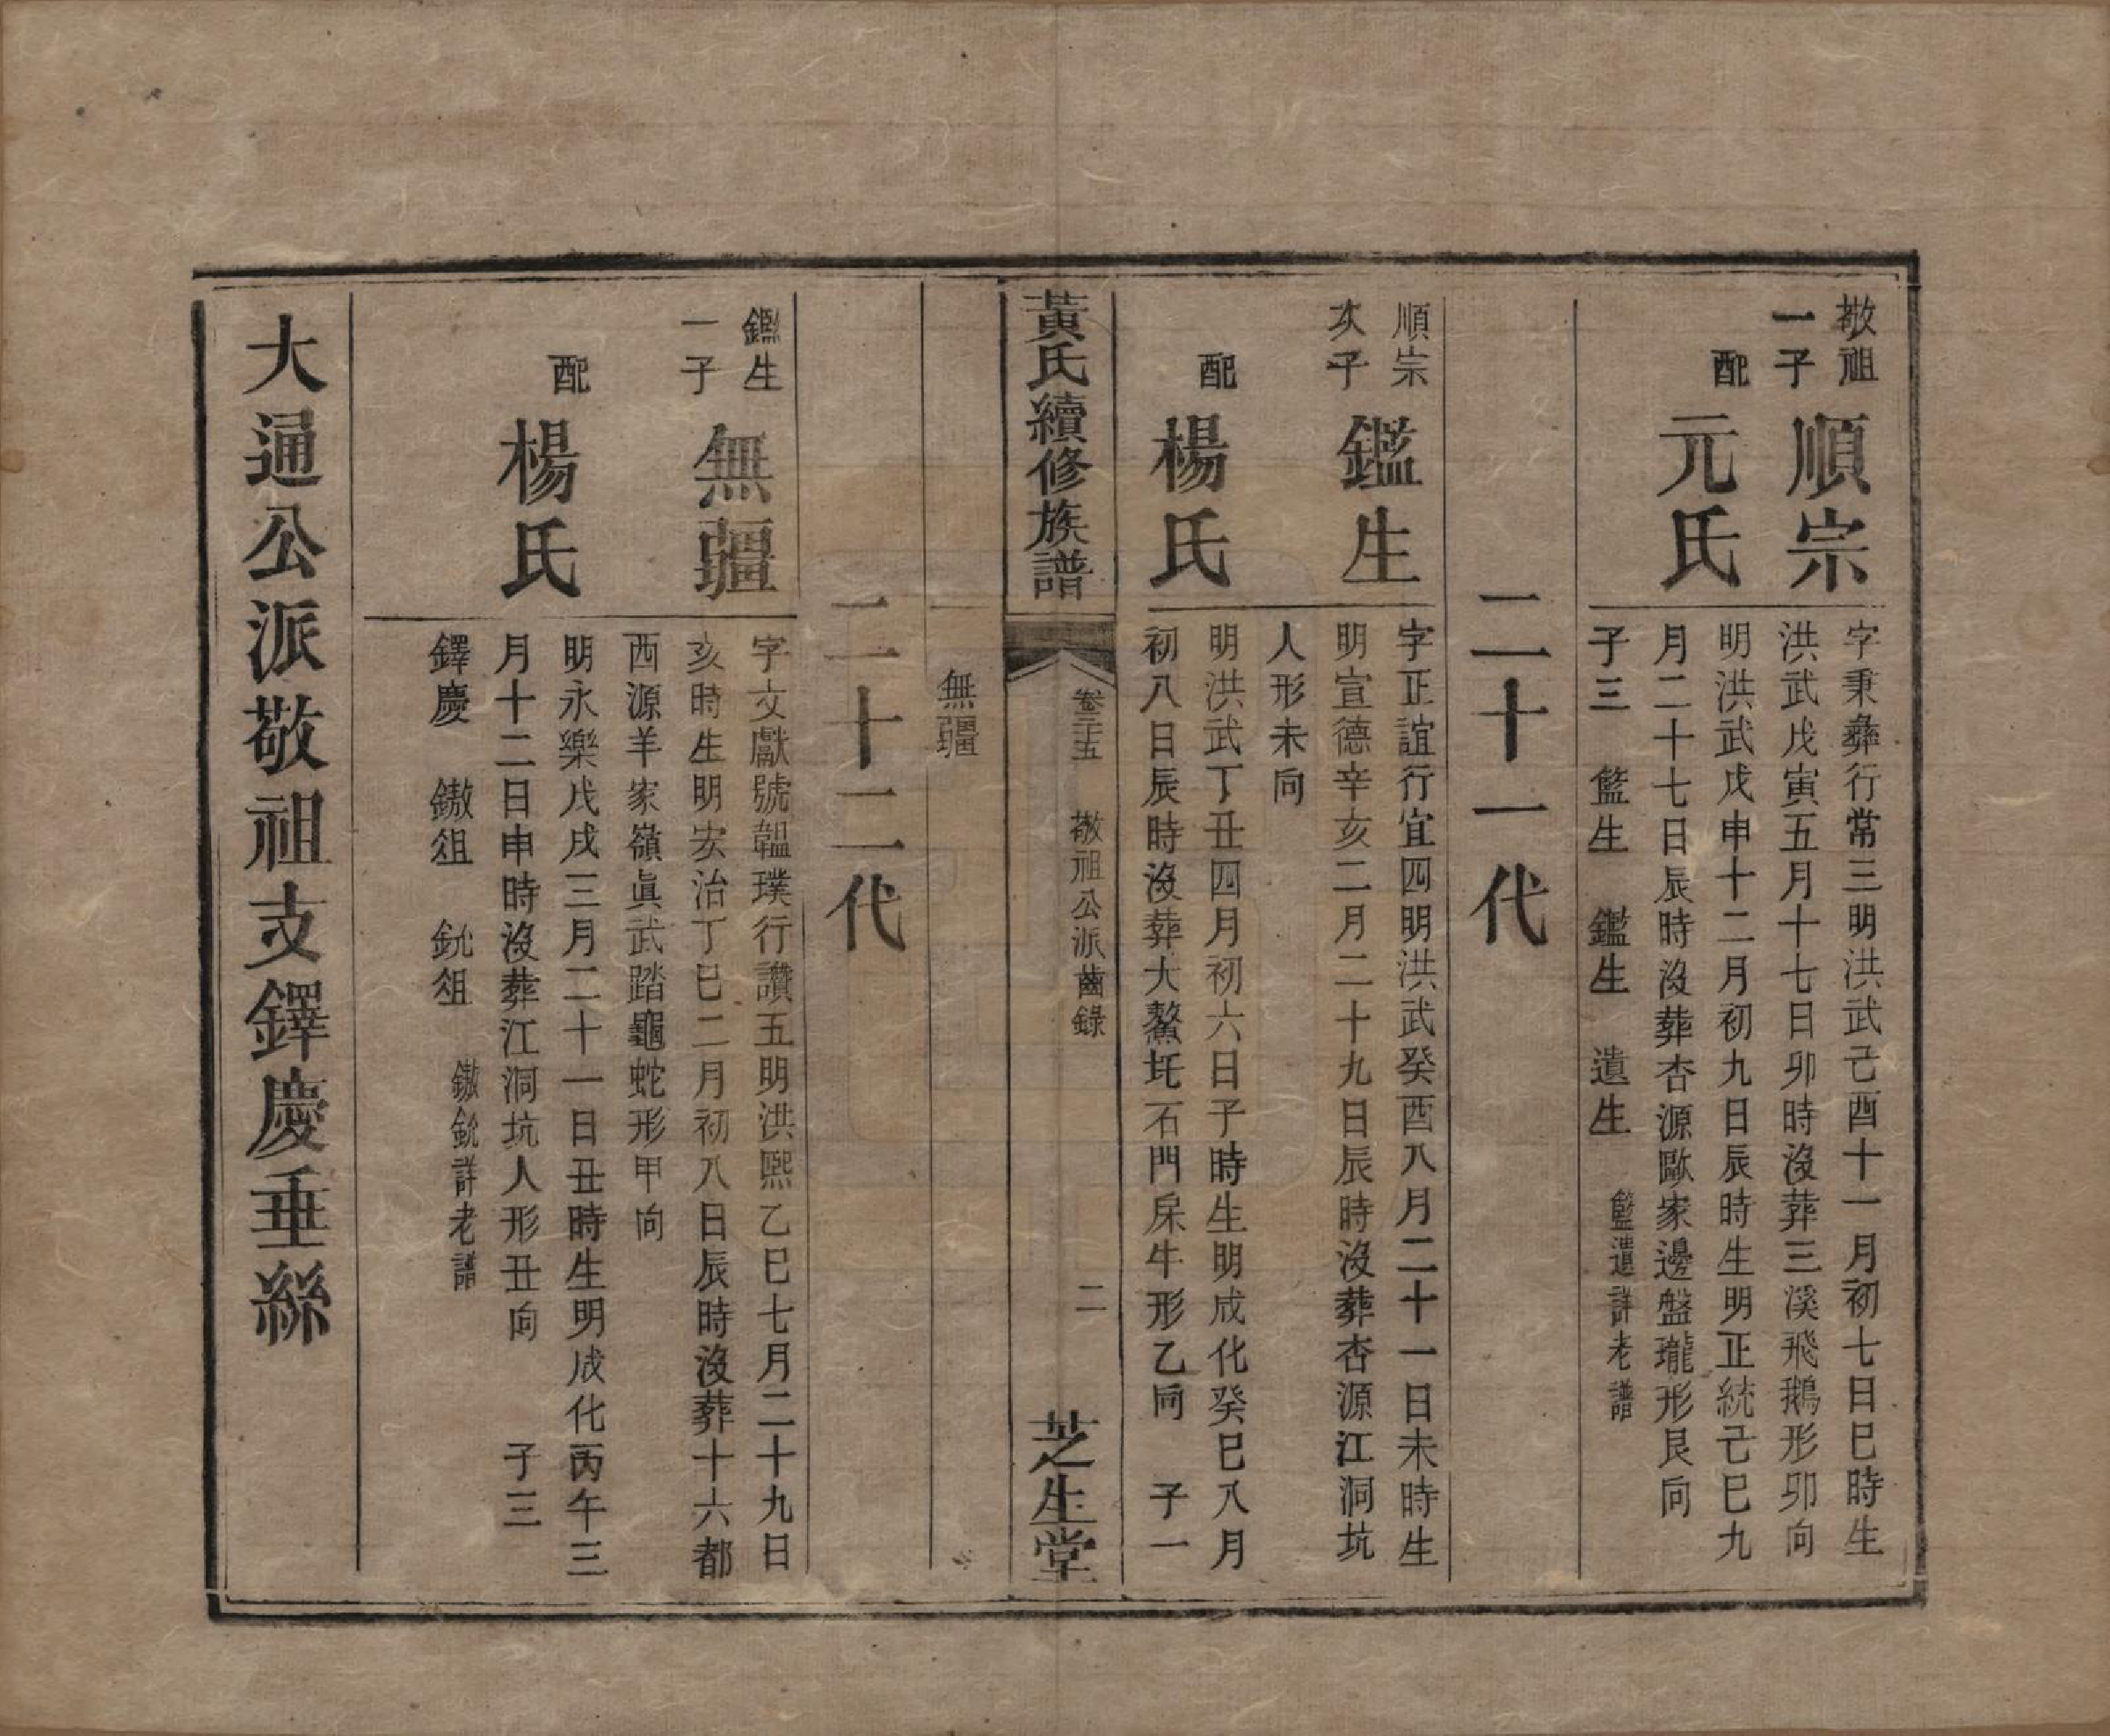 敬祖
一子
順宗
字秉彝行常三明洪武己酉十一月初七日巳時生
洪武戊寅五月十七日卯時沒葬三溪飛鵝形卯向
配
元氏
明洪武戊申十二月初九日辰時生明正統己巳九
月二十七日辰時沒葬杏源歐家邊盤瓏形艮向
子三 籃生 鑑生 遺生 籃遺詳老譜
二十一代
順宗
次子
鑑生
字正誼行宜四明洪武癸酉八月二十一日未時生
明宣德辛亥二月二十九日辰時沒葬杏源江洞坑
人形未向
配
楊氏
明洪武丁丑四月初六日子時生明成化癸巳八月
初八日辰時沒葬大鰲圫石門牀牛形乙向 子一
黃氏續修族譜
卷三五 敬祖公派齒錄
二
芝生堂
無疆
二十二代
鑑生
一子
無疆
字文獻號韞璞行讚五明洪熙乙巳七月二十九日
亥時生明宏治丁巳二月初八日辰時沒葬十六都
西源羊家嶺眞武踏龜蛇形甲向
配
楊氏
明永樂戊戌三月二十一日丑時生明成化丙午三
月十二日申時沒葬江洞坑人形丑向 子三
鐸慶 鏾俎 鈗俎 鏾鈗詳老譜
大通公派敬祖支鐸慶垂絲